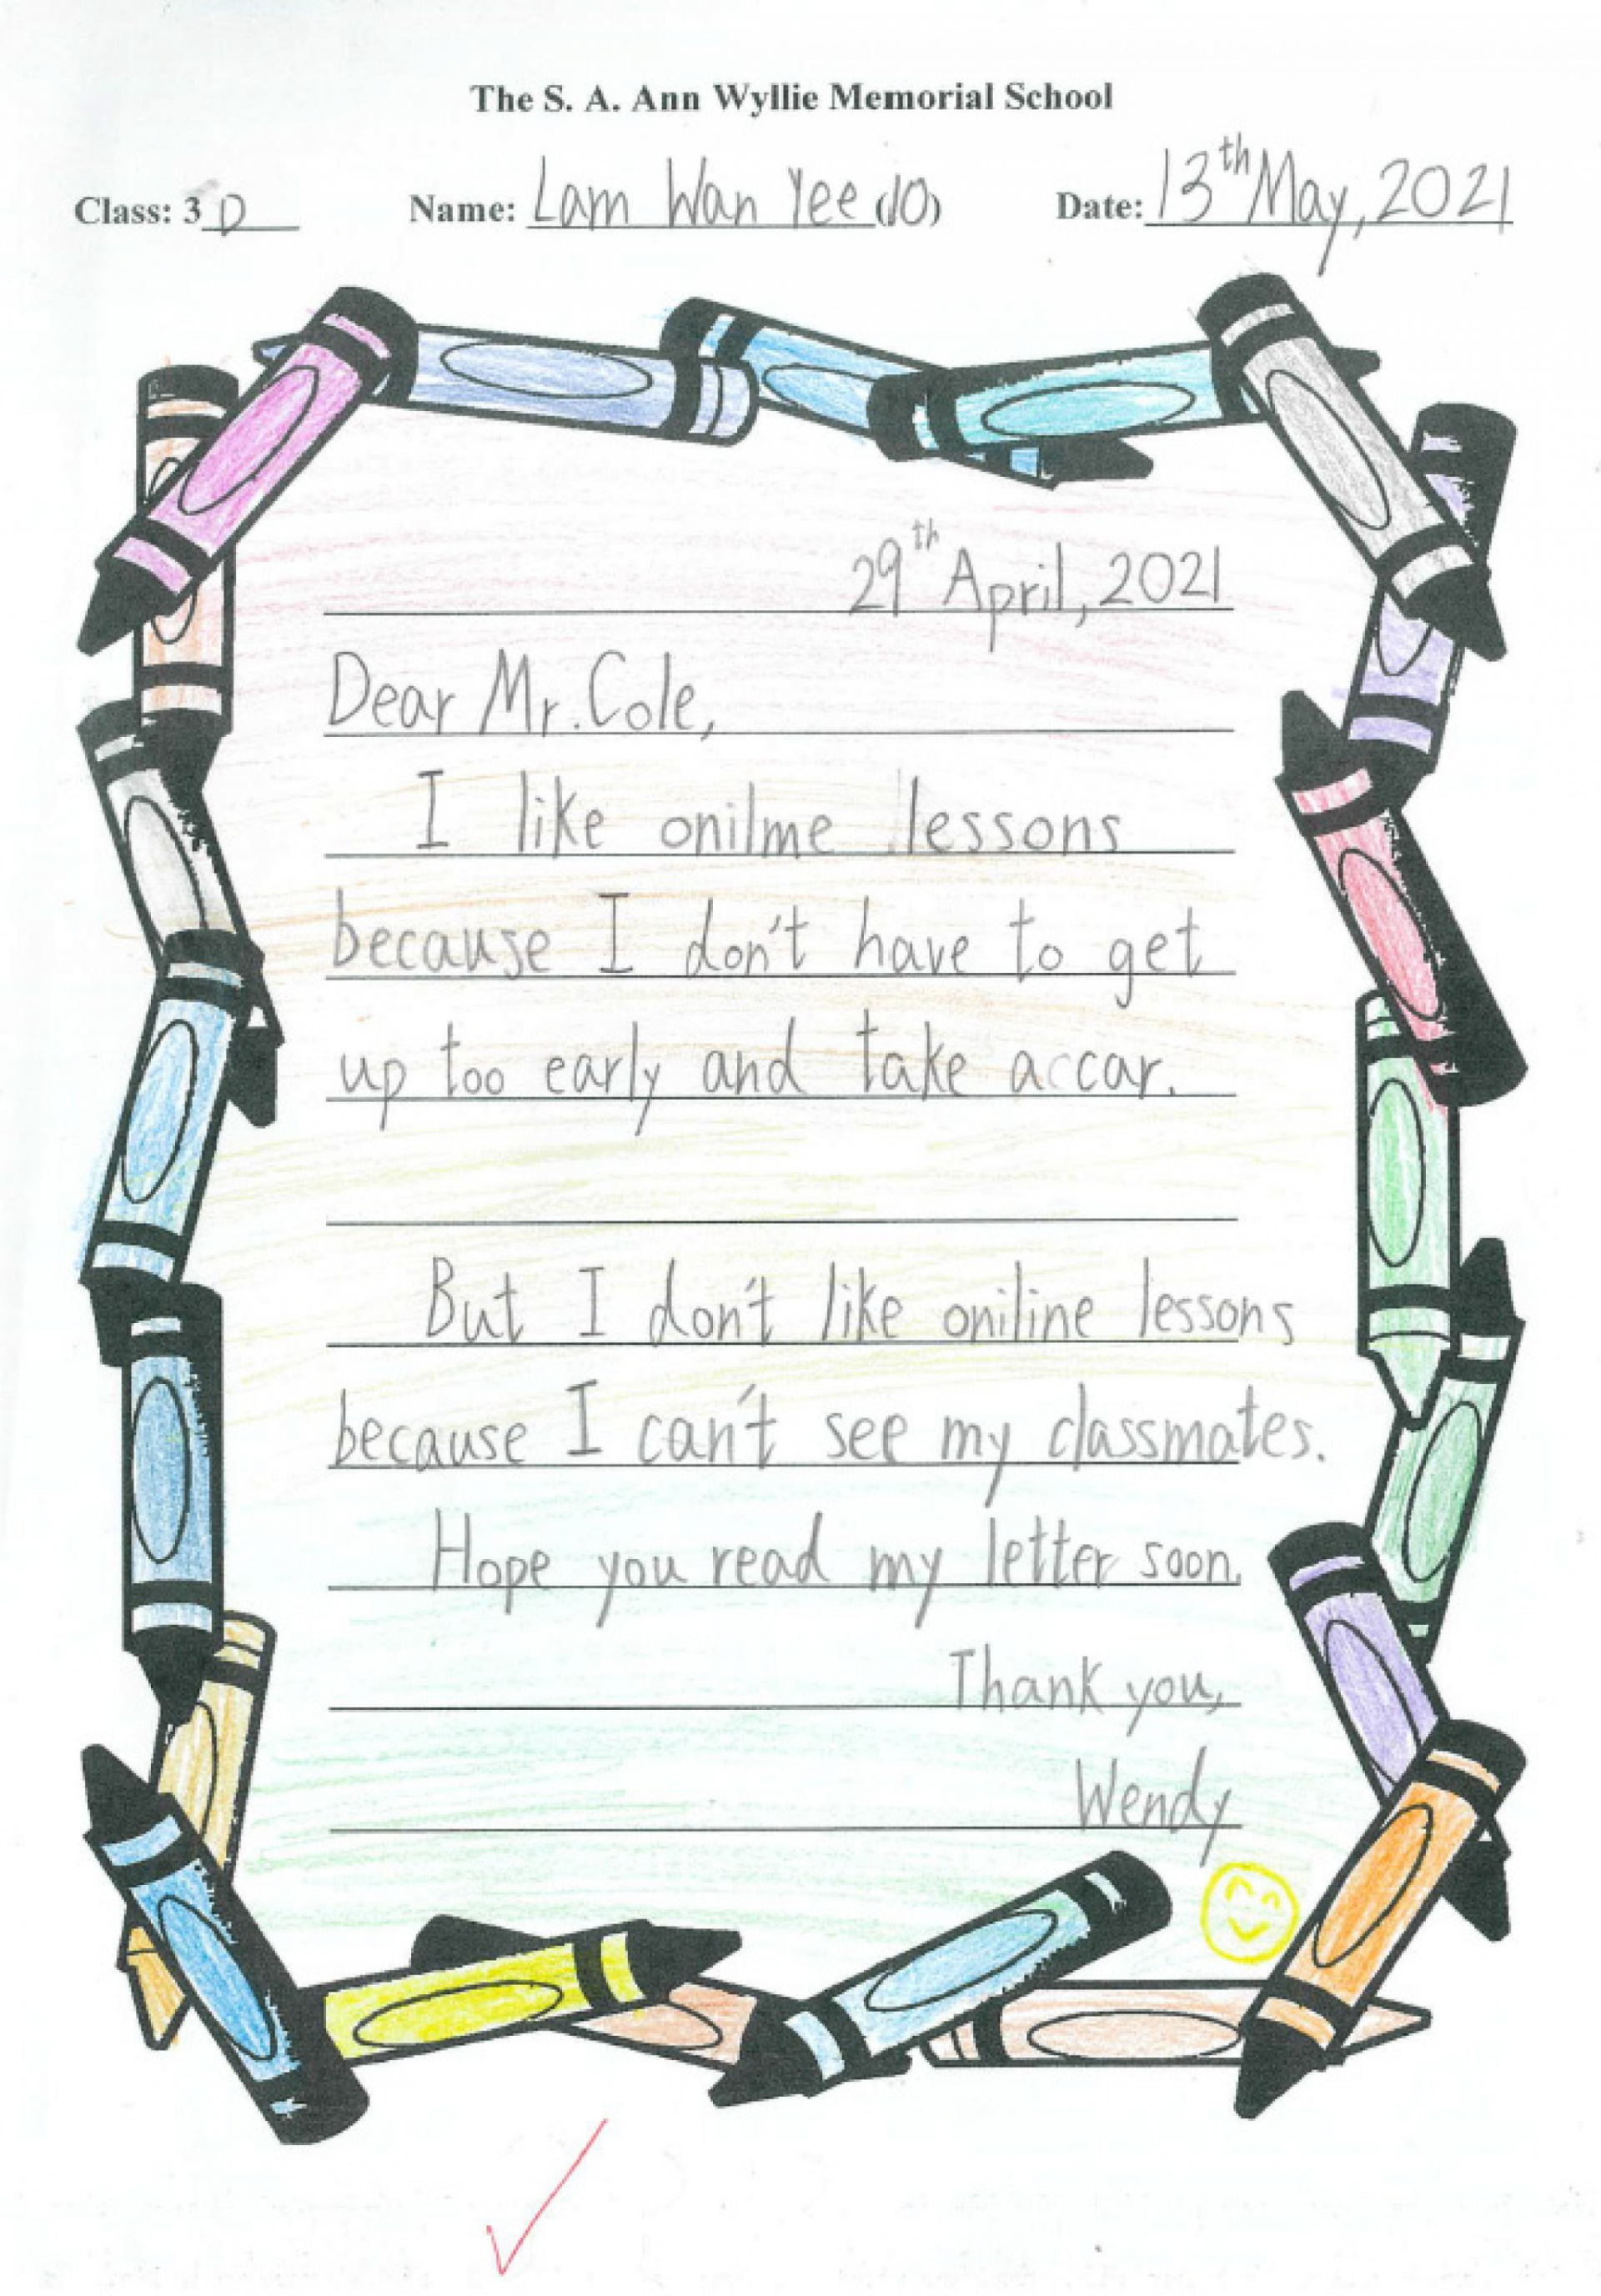 The S. A. Ann Wyllie Memorial School
Class: 3 D Name: Lam Wan Yee (10) Date: 13th May, 2021
29th April, 2021
Dear Mr. Cole,
I like onilme lessons
because I don't have to get
up too early and take accar.
But I don't like oniline lessons
because I can't see my classmates.
Hope you read my letter soon.
Thank you,
Wendy